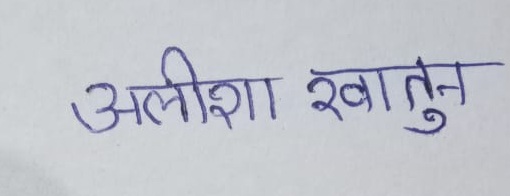 अलीशा खातुन